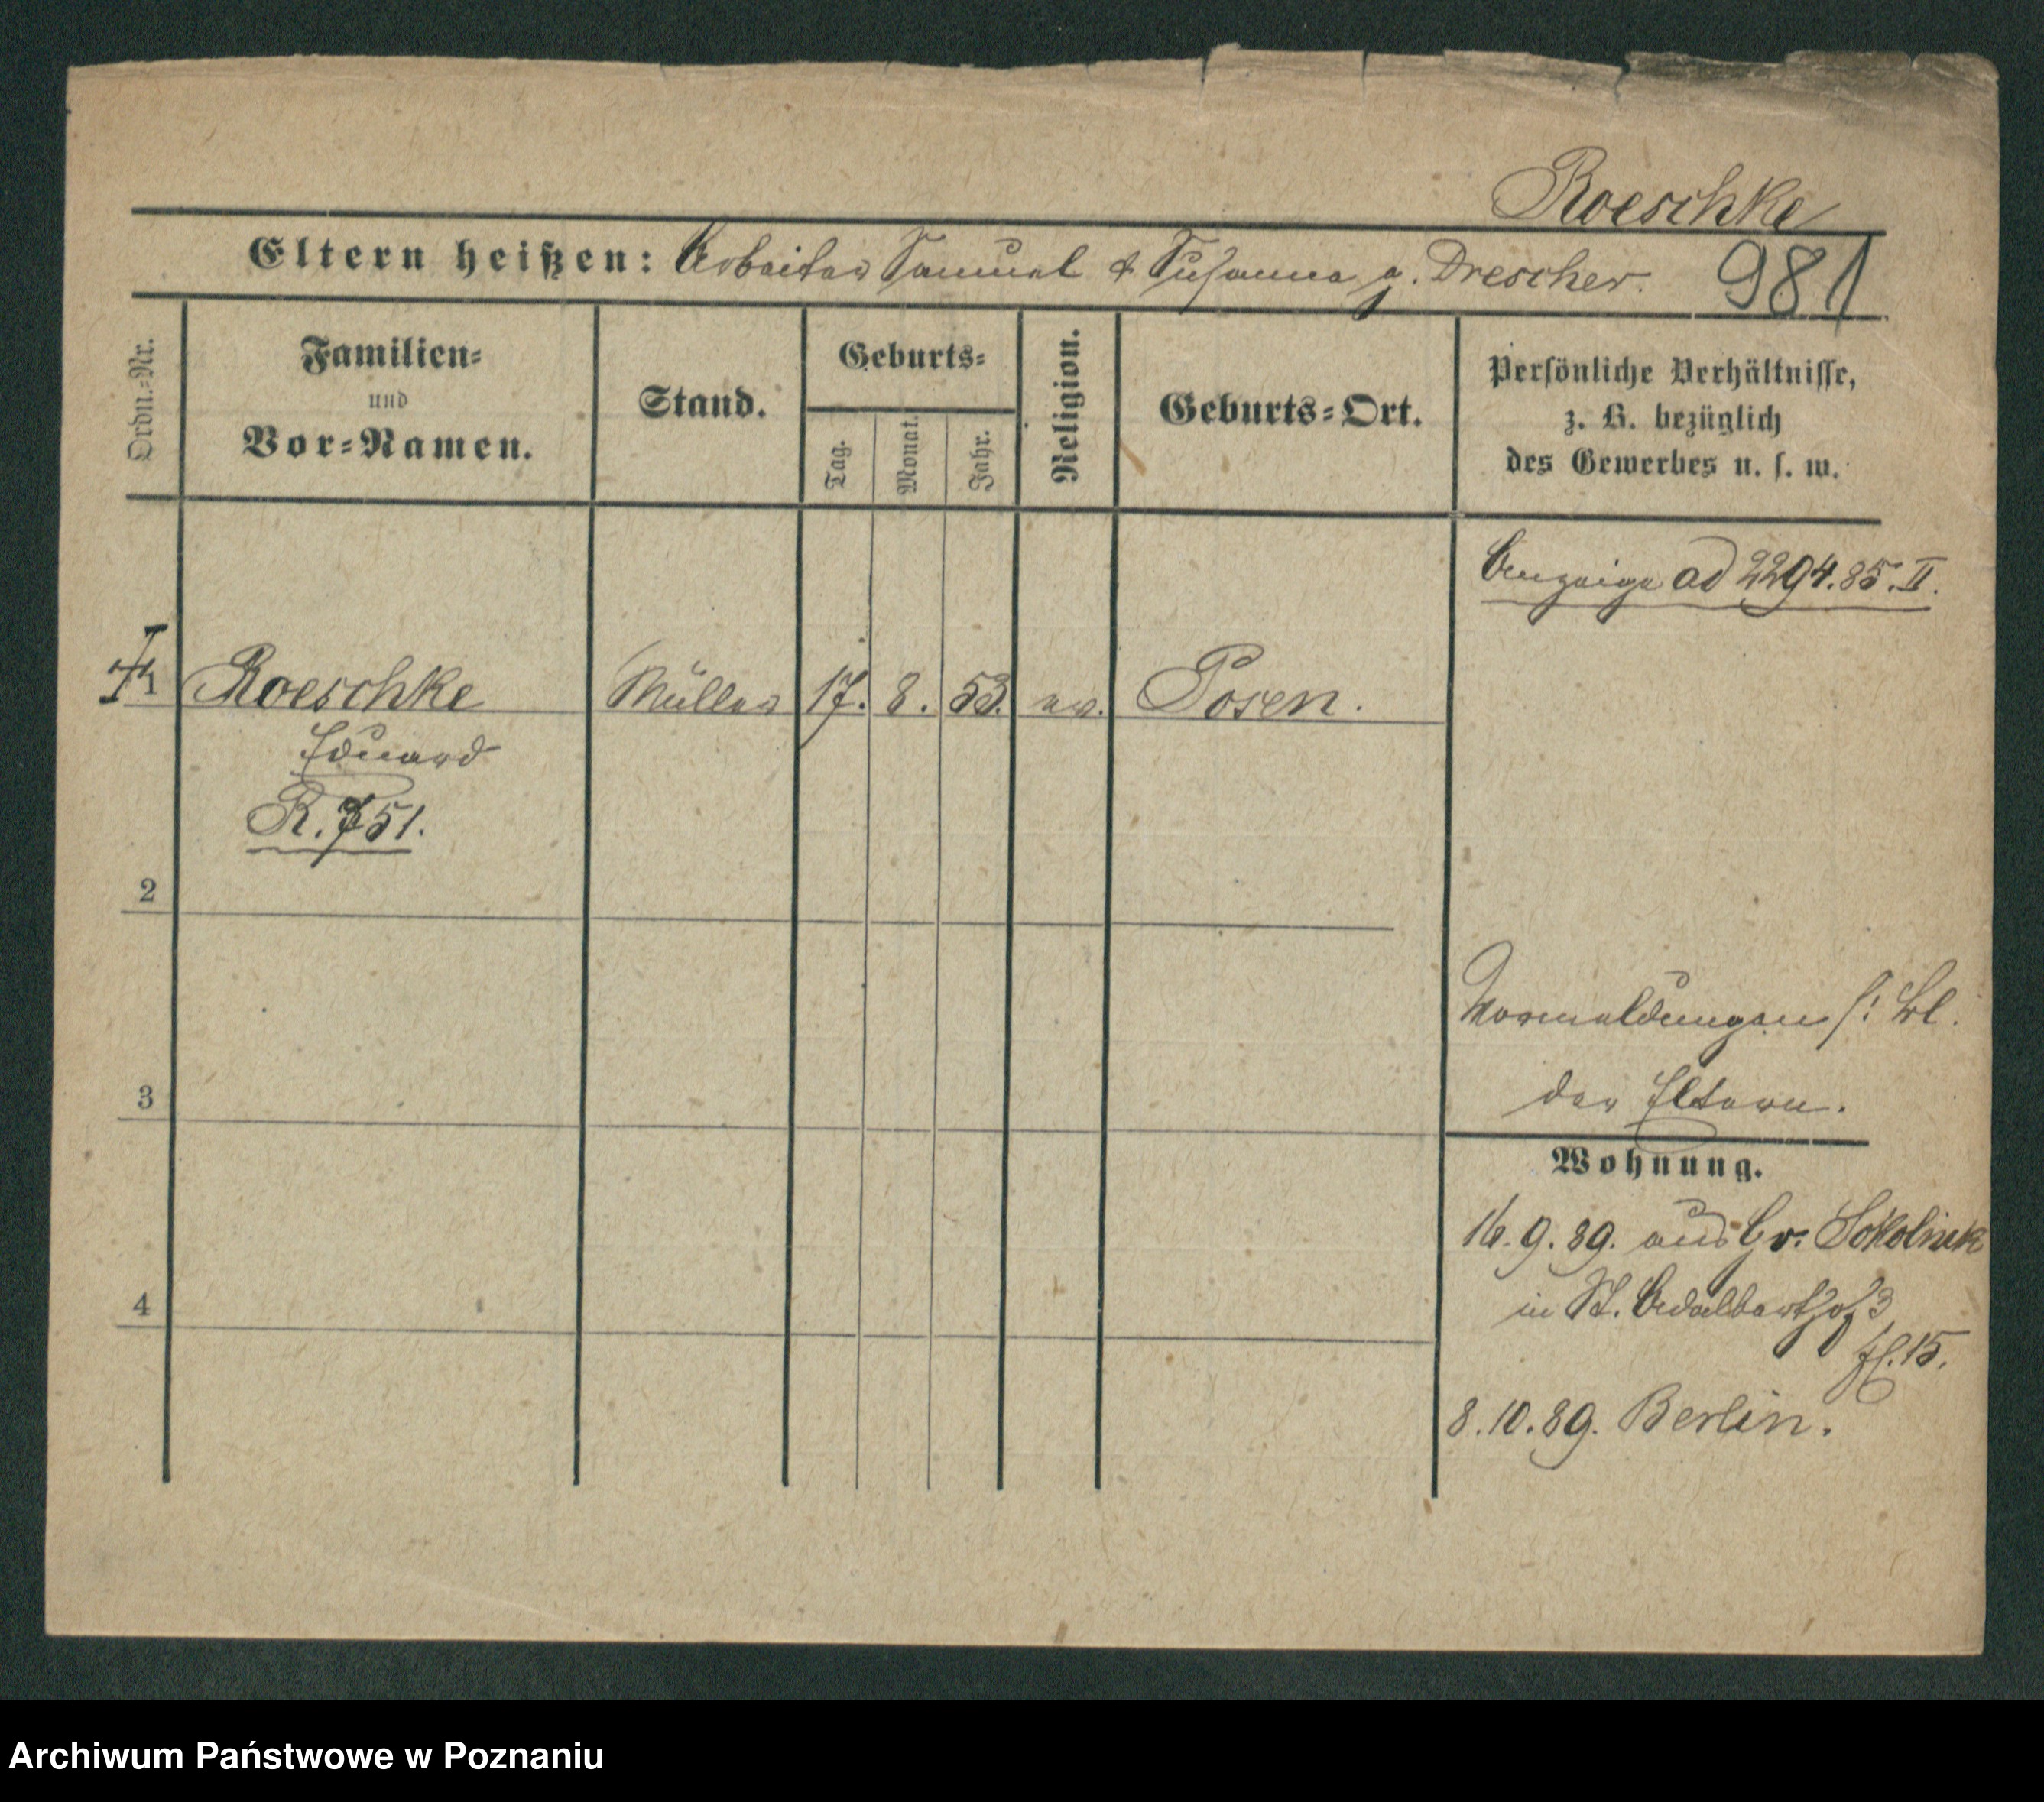 Roeschke
Eltern heißen: Arbeiter Samuel & Susanna g. Drescher. 981
Ordn.=Nr.
Familien=
und
Vor=Namen.
Stand.
Geburts=
Tag.
Monat.
Jahr.
Religion.
Geburts=Ort.
Persönliche Verhältnisse,
z. B. bezüglich
des Gewerbes u. s. w.
Anzeige ad 2294.85.II.
1 Roeschke Müller 17. 8. 53. ev. Posen.
Eduard
R. 751.
2
Vormeldungen s: Bl.
der Eltern.
3
Wohnung.
16.9.89. aus Gr. Sokolnik
in St. Adalbert 3
4
fl. 15.
8.10.89. Berlin.
Archiwum Państwowe w Poznaniu